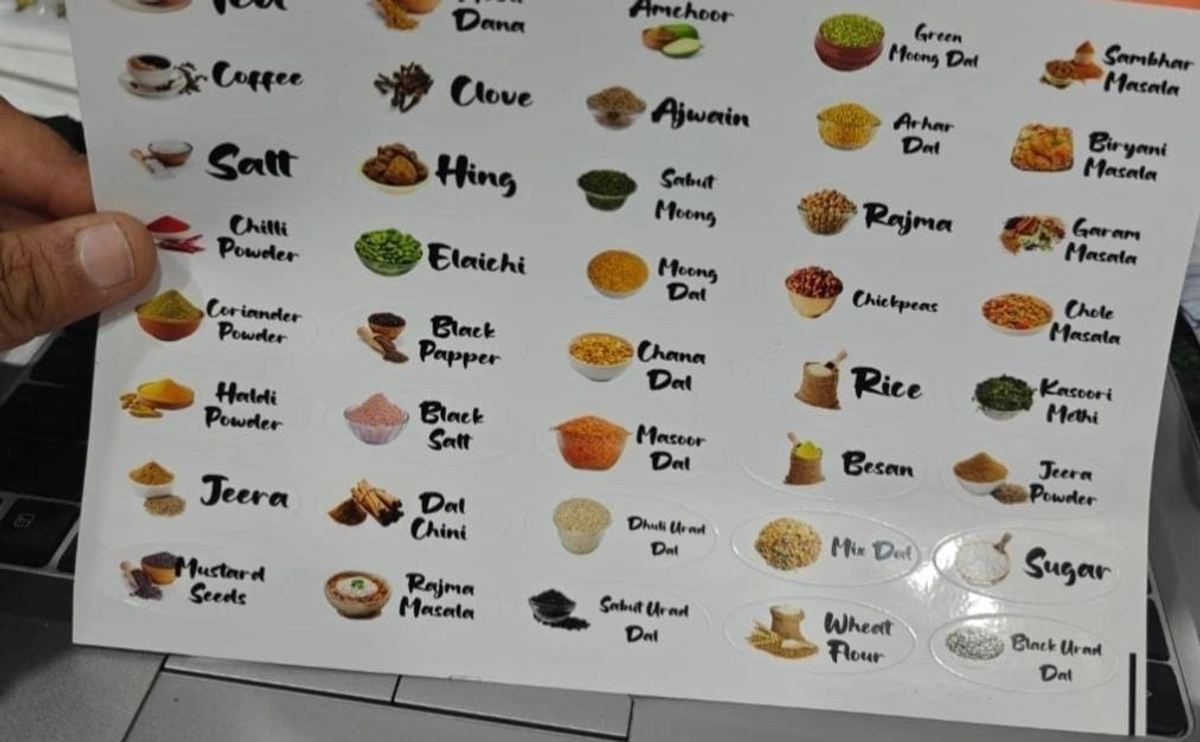 Tea
Coffee
Salt
Chilli
Powder
Coriander
Powder
Haldi
Powder
Jeera
Mustard
Seeds
Dana
Clove
Hing
Elaichi
Black
Papper
Black
Salt
Dal
Chini
Rajma
Masala
Amchoor
Ajwain
Sabut
Moong
Moong
Dal
Chana
Dal
Masoor
Dal
Dhuli Urad
Dal
Sabut Urad
Dal
Green
Moong Dal
Arhar
Dal
Rajma
Chickpeas
Rice
Besan
Mix Dal
Wheat
Flour
Sambhar
Masala
Biryani
Masala
Garam
Masala
Chole
Masala
Kasoori
Methi
Jeera
Powder
Sugar
Black Urad
Dal